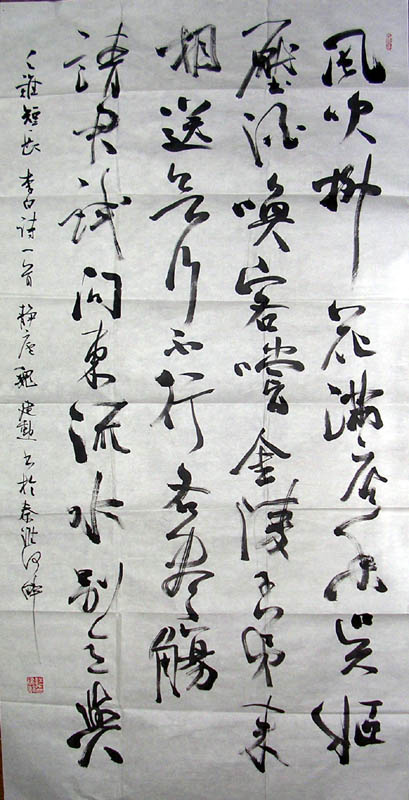 風吹柳花滿店香吳姬
壓酒喚客嚐金陵子弟来
相送欲行不行各盡觴
請君試問東流水別意與
之誰短長 李白诗一首 静 魏 书於秦淮河畔